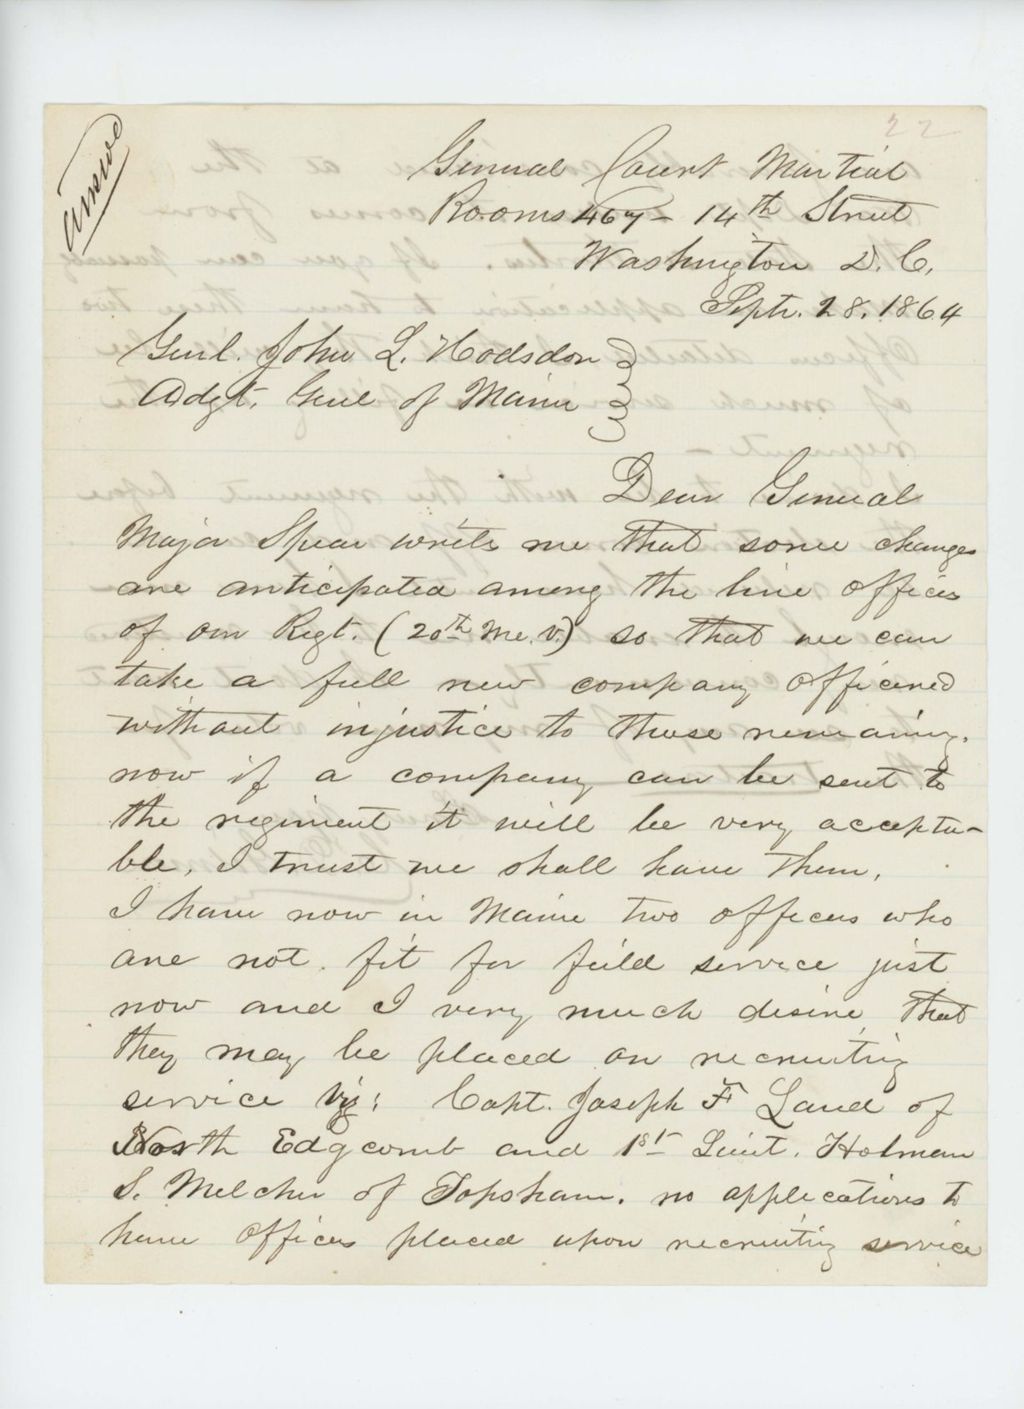 22
answd
General Court Martial
Rooms 467 - 14th Street
Washington D.C.
Septr. 28. 1864
Genl. John L. Hodsdon
Adgt. Genl of Maine
Dear General
Major Spear writes me that some changes
are anticipated among the line officers
of our Regt. (20th Me. V.) so that we can
take a full new company officered
without injustice to those remaining.
now if a company can be sent to
the regiment it will be very accepta-
ble, I trust we shall have them.
I have now in Maine two officers who
are not fit for feild service just
now and I very much desire that
they may be placed on recruiting
service viz: Capt. Joseph F Land of
North Edgcomb and 1st Lieut. Holman
S. Melcher of Topsham. no applications to
have officers placed upon recruiting service